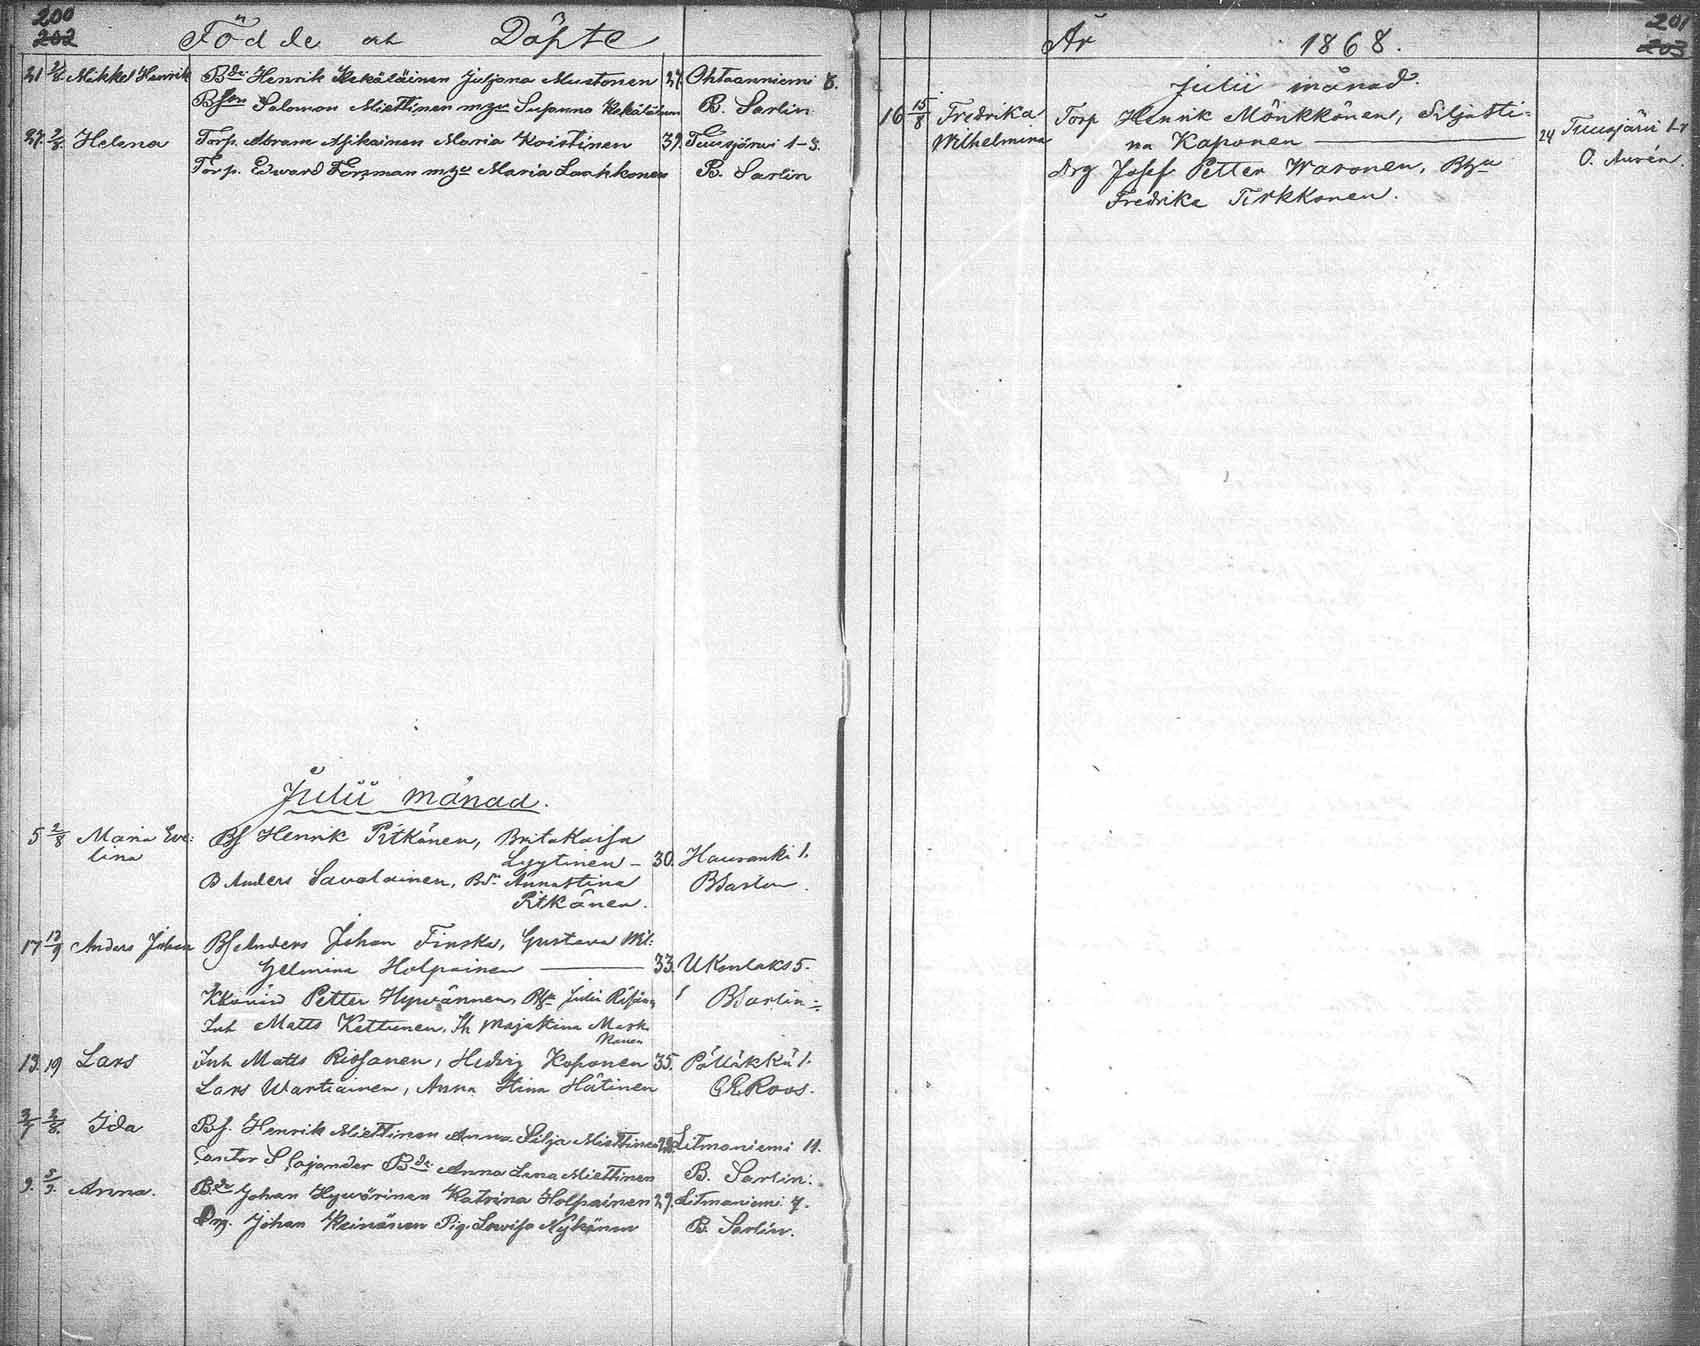 200
202
Födde och Döpte
21 2/8 Mikkel Henrik Bde Henrik Kekäläinen Juljana Mustonen 27. Ohtaanniemi 8.
Bson Salomon Miettinen m hu Susanna Kekäläinen B. Sarlin
27. 2/8. Helena Torp. Abram Asikainen Maria Koistinen 39. Tuusjärvi 1-3.
Torp. Edward Forsman m hu Maria Laakkonen B. Sarlin
Julii månad.
5 2/8 Maria Eve: Bf Henrik Pitkänen, Brita Kaisa
lina Lyytinen - 30. Hauranki 1.
B Anders Savolainen, Bdr Anna Stina BSarlin.
Pitkänen.
17 13/9 Anders Johan Bf Anders Johan Finska, Gustava Wil:
helmina Holpainen 33. UKonlaks 5.
Petter Hyvännen, Julii BSarlin
Inh Matts Kettunen, Ih Majastina Mark
kanen
13. 19 Lars Inh Matts Rissanen, Hedvig Koponen 35. Pölläkkä 1.
Lars Wartiainen, Anna Stina Hätinen CERoos.
3/7 2/8. Ida Bf. Henrik Miettinen Anna Silja Miettinen 28. Litmaniemi 11.
Cantor S Cajander Bde Anna Lena Miettinen B. Sarlin.
9. 5/9. Anna. Bde Johan Hyvärinen Katrina Holpainen 29. Litmaniemi 7.
Drg. Johan Keinänen Pig. Lovisa Nykänen B. Sarlin.
201
203
År 1868.
Julii månad
16 15/8 Fredrika Torp Henrik Mönkkönen, Siljasti=
Wilhelmina na Kaponen 24 Tuusjärvi 1-7
Drg Josef Petter Waronen, Bhu O. Aurén.
Fredrika Tirkkonen.